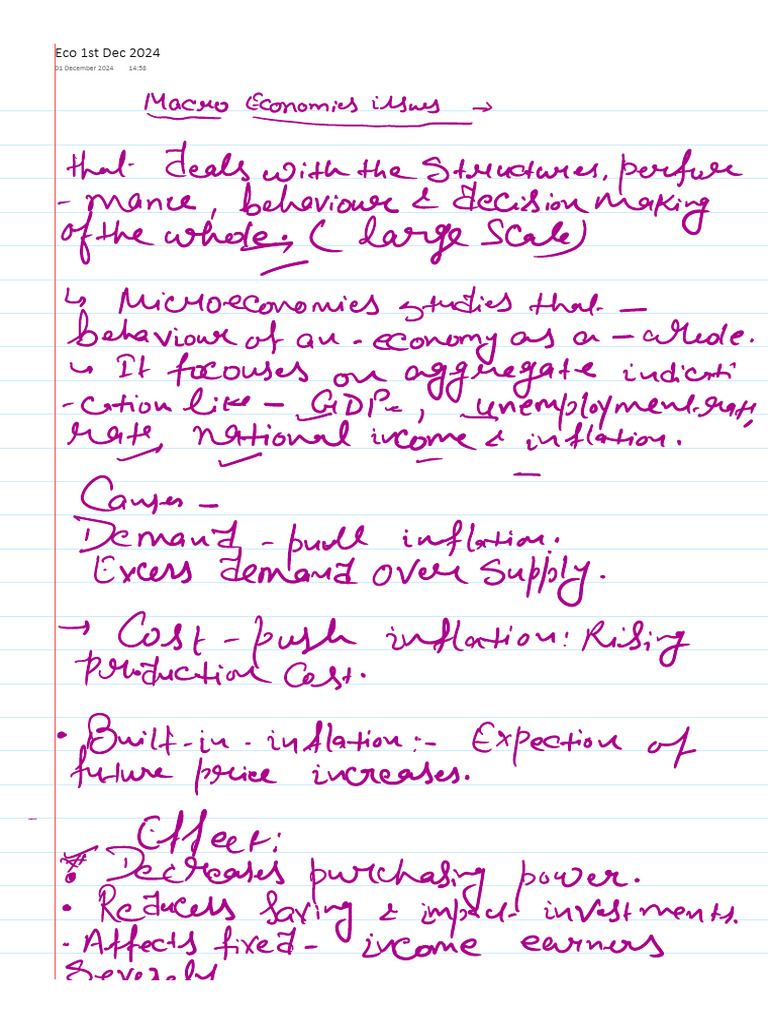 Eco 1st Dec 2024
01 December 2024 14:58
Macro Economics issues →
that deals with the Structures, perfor
- mance, behaviour & decision making
of the whole. ( large Scale)
↳ Microeconomics studies that —
behaviour of an - economy as a — whole.
↳ It focouses on aggregate indicati
- cation like — GDP, unemployment-rate,
rate, national income & inflation.
Causes —
Demand - pull inflation.
Excess demand over Supply.
→ Cost - push inflation: Rising
production Cost.
• Built-in - inflation :- Expection of
future price increases.
Effect:
• Decreases purchasing power.
• Reducess Saving & impact investments.
• Affects fixed - income earners
Severely